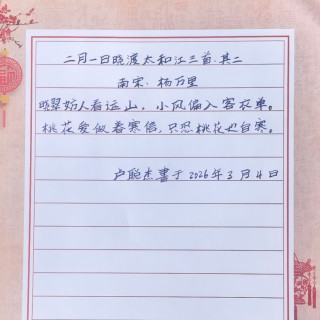 二月一日晓渡太和江三首·其二
南宋·杨万里
晓翠妨人看远山，小风偏入客衣单。
桃花爱做春寒信，只恐桃花也自寒。
卢聪杰書于2026年3月4日